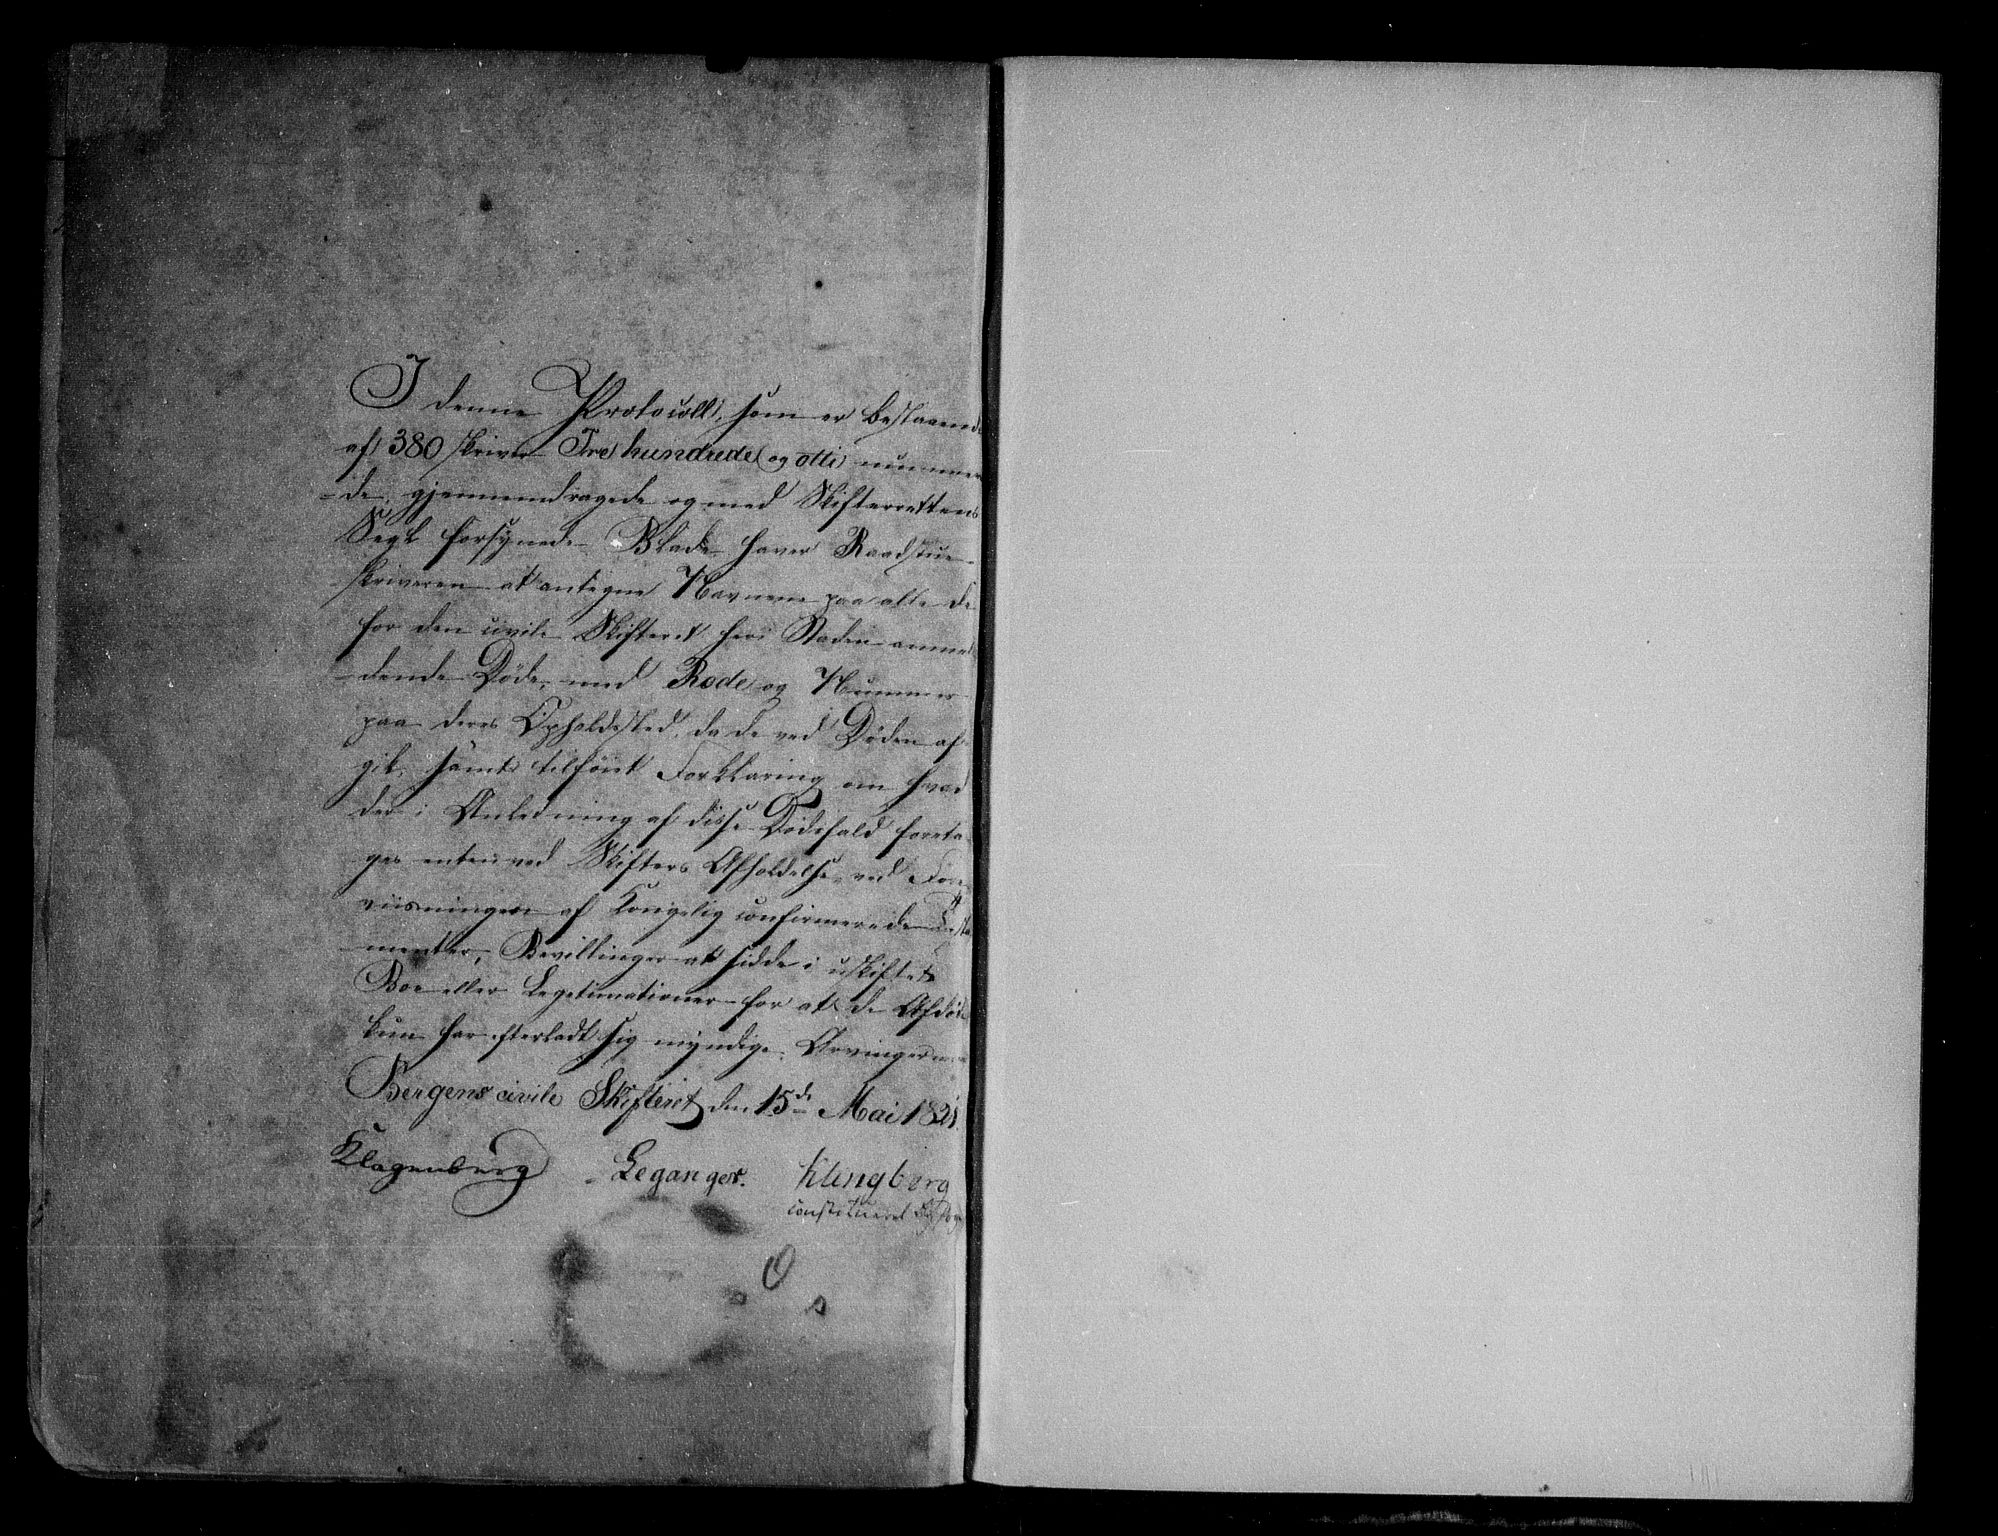 I denne Protocoll, som er bestaaende
af 380 skriver Tre hundrede og otti nummere
=de, gjennemdragede og med Skifterettens
Segl forsynede Blade haver Raadstue-
skriveren at antegne Navnene paa alle de
for den civile Skifteret her i Staden anmel
dende Døde, med Rode og Nummer
paa deres Opholdsted, da de ved Døden af-
gik, samt tilføiet Forklaring om hvad
der i Anledning af disse Dødsfald foreta-
ges enten ved Skifters Afholdelse ved Fore-
viisninger af Kongelig confirmerede Testa
menter, Bevillinger at sidde i uskiftet
Boe eller Legetimationer for at de Afdøde
kun har efterladt sig myndige Arvinger
Bergens civile Skifteret den 15de Mai 1821.
Klagenberg Leganger. Klingberg
constitueret Byefoged